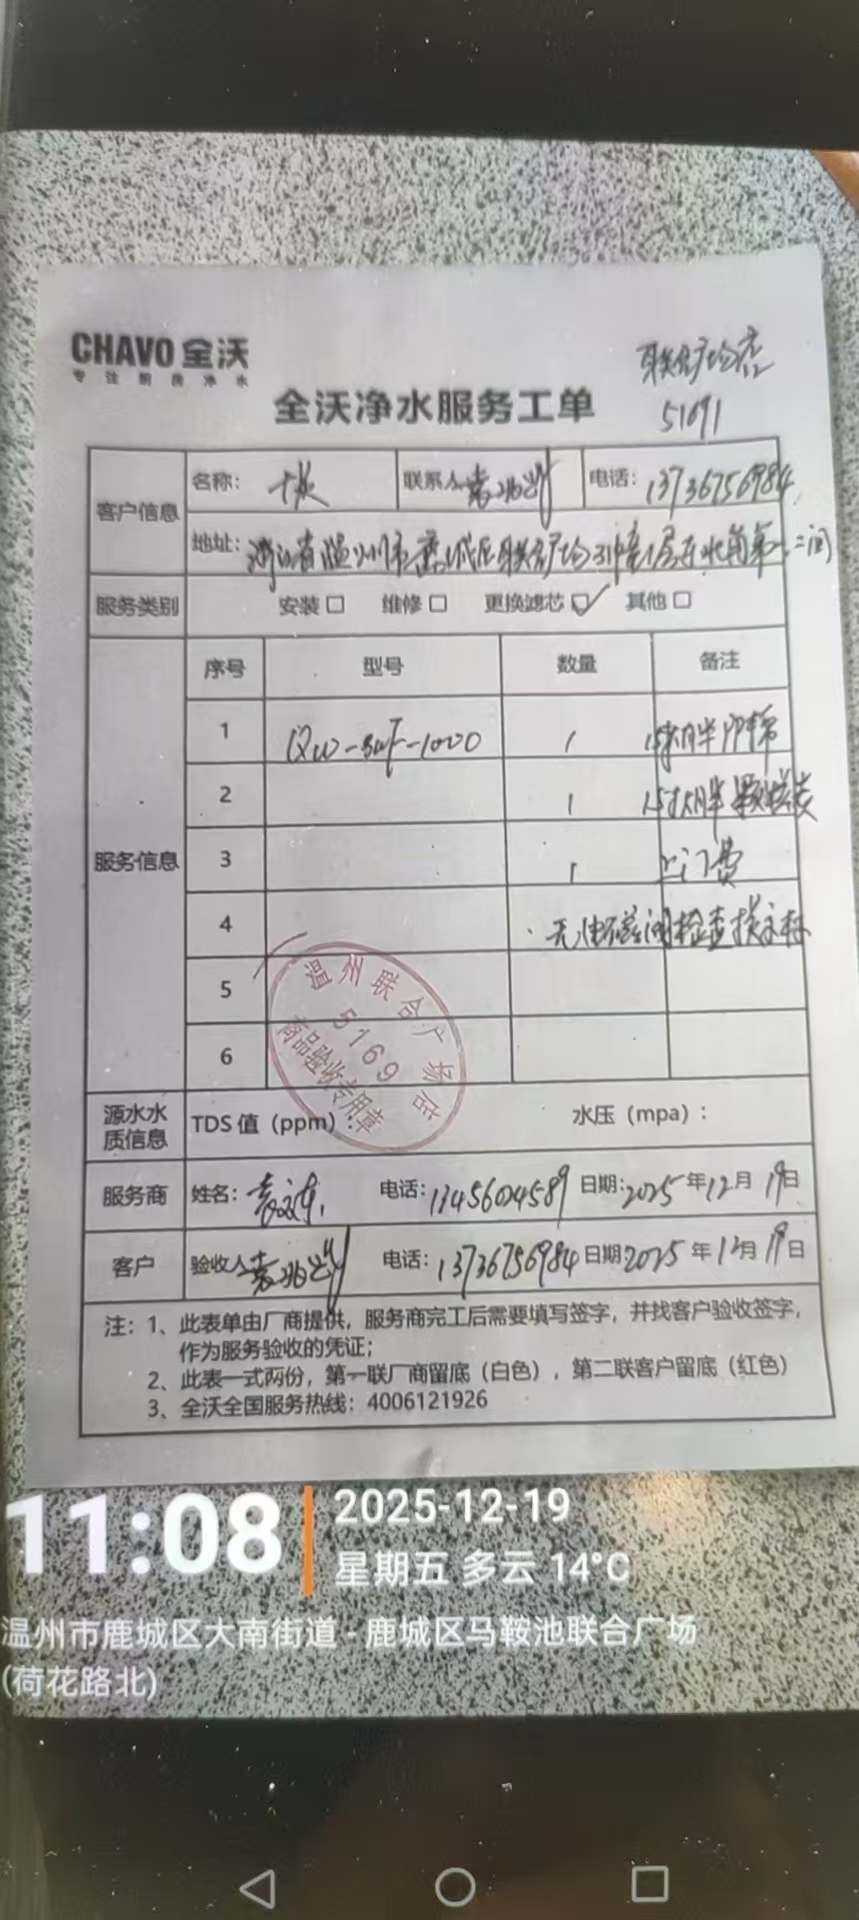 CHAVO 全沃
专注厨房净水
联合广场店
全沃净水服务工单
客户信息 名称： 联系人 电话：13736756984
地址：浙江省温州市鹿城区联合广场 1层东北角第一二间
服务类别 安装□ 维修□ 更换滤芯☑ 其他□
序号 型号 数量 备注
服务信息
1 QW-3WF-1000 1
2 1
3 1 上门费
4 无电磁阀检查
5
6
温州联合广场店
5169
商品验收专用章
源水水质信息 TDS 值（ppm）： 水压（mpa）：
服务商 姓名： 电话： 日期：2025年12月19日
客户 验收人 电话：13736756984 日期 2025年12月19日
注：1、此表单由厂商提供，服务商完工后需要填写签字，并找客户验收签字，
作为服务验收的凭证；
2、此表一式两份，第一联厂商留底（白色），第二联客户留底（红色）
3、全沃全国服务热线：4006121926
11:08
2025-12-19
星期五 多云 14°C
温州市鹿城区大南街道 - 鹿城区马鞍池联合广场
(荷花路北)